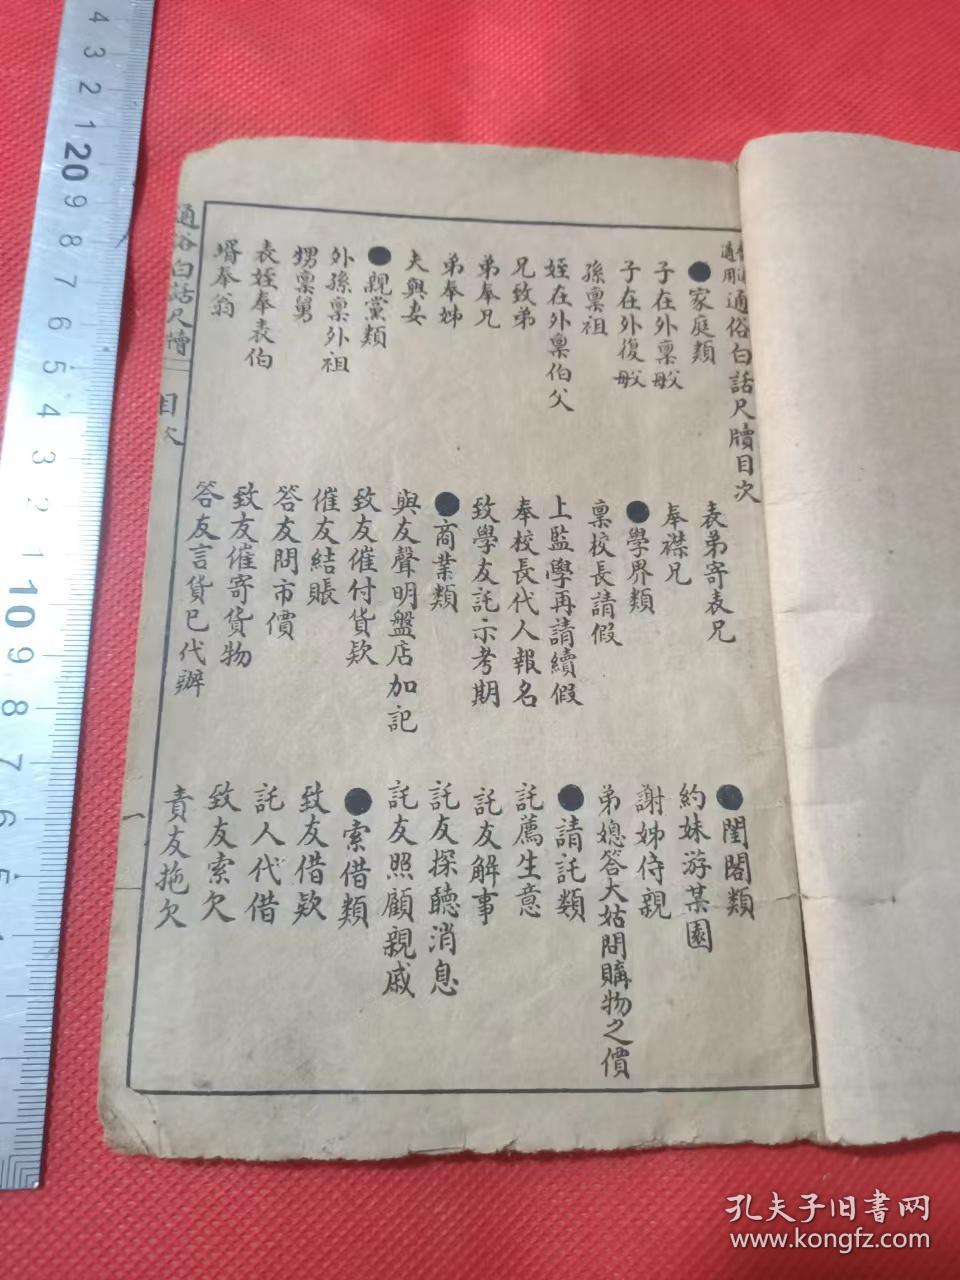 通俗白話尺牘目次
●家庭類
子在外稟父母
子在外復父母
孫稟祖
姪在外稟伯父
兄致弟
弟奉兄
弟奉姊
夫與妻
●親黨類
外孫稟外祖
甥稟舅
表姪奉表伯
壻奉翁
表弟寄表兄
奉襟兄
●學界類
稟校長請假
上監學再請續假
奉校長代人報名
致學友託示考期
●商業類
與友聲明盤店加記
致友催付貨欵
催友結賬
答友問市價
致友催寄貨物
答友言貨已代辦
●閨閣類
約妹游某園
謝姊侍親
弟媳答大姑問購物之價
●請託類
託薦生意
託友解事
託友探聽消息
託友照顧親戚
●索借類
致友借欵
託人代借
致友索欠
責友拖欠
通俗白話尺牘
目次
一
4 3 2 1 20 9 8 7 6 5 4 3 2 1 10 9 8 7 6 5
孔夫子旧书网
www.kongfz.com